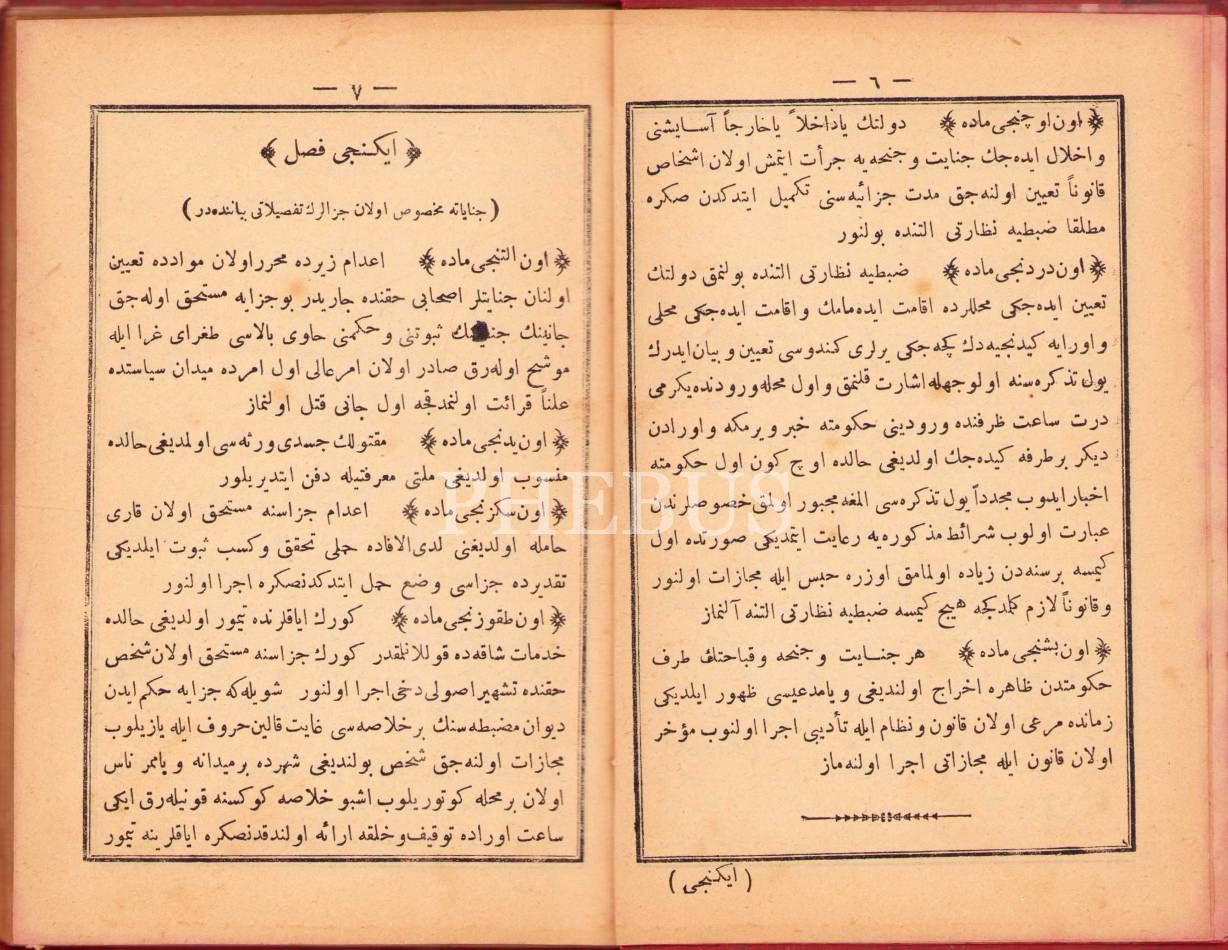 — ٦ —
﴿ اون اوچنجی ماده ﴾ دولتك یاداخلاً یاخارجاً آسایشنی
و اخلال ایده‌جك جنایت و جنحه‌یه جرأت ایتمش اولان اشخاص
قانوناً تعیین اولنه‌جق مدت جزائیه‌سنی تکمیل ایتدکدن صکره
مطلقا ضبطیه نظارتی التنده بولنور
﴿ اون دردنجی ماده ﴾ ضبطیه نظارتی التنده بولنمق دولتك
تعیین ایده‌جکی محللرده اقامت ایده‌مامك و اقامت ایده‌جکی محلی
و اورایه کیدنجیه‌دك کچه‌جکی یرلری کندوسی تعیین و بیان ایدرك
یول تذکره‌سنه اولوجهله اشارت قلنمق و اول محله ورودنده یکرمی
درت ساعت ظرفنده ورودینی حکومته خبر ویرمکه و اورادن
دیکر بر طرفه کیده‌جك اولدیغی حالده اوچ کون اول حکومته
اخبار ایدوب مجدداً یول تذکره‌سی المغه مجبور اولمق خصوصلرندن
عبارت اولوب شرائط مذکوره‌یه رعایت ایتمدیکی صورتده اول
کیمسه برسنه‌دن زیاده اولمامق اوزره حبس ایله مجازات اولنور
و قانوناً لازم کلمدکجه هیچ کیمسه ضبطیه نظارتی التنه آلنماز
﴿ اون بشنجی ماده ﴾ هر جنایت و جنحه و قباحتك طرف
حکومتدن ظاهره اخراج اولندیغی و یامدعیسی ظهور ایلدیکی
زمانده مرعی اولان قانون و نظام ایله تأدیبی اجرا اولنوب مؤخر
اولان قانون ایله مجازاتی اجرا اولنه‌ماز
( ایکنجی )
— ٧ —
﴿ ایکنجی فصل ﴾
( جنایاته مخصوص اولان جزالرك تفصیلاتی بیاننده‌در )
﴿ اون التنجی ماده ﴾ اعدام زیرده محرر اولان موادده تعیین
اولنان جنایتلر اصحابی حقنده جاریدر بوجزایه مستحق اوله‌جق
جانینك ثبوتنی و حکمنی حاوی بالاسی طغرای غرا ایله
موشح اوله‌رق صادر اولان امرعالی اول امرده میدان سیاستده
علناً قرائت اولنمدقجه اول جانی قتل اولنماز
﴿ اون یدنجی ماده ﴾ مقتولك جسدی ورثه‌سی اولمدیغی حالده
منسوب اولدیغی ملتی معرفتیله دفن ایتدیریلور
﴿ اون سکزنجی ماده ﴾ اعدام جزاسنه مستحق اولان قاری
حامله اولدیغنی لدی‌الافاده حملی تحقق و کسب ثبوت ایلدیکی
تقدیرده جزاسی وضع حمل ایتدکدنصکره اجرا اولنور
﴿ اون طقوزنجی ماده ﴾ کورك ایاقلرنده تیمور اولدیغی حالده
خدمات شاقه‌ده قوللانلمقدر کورك جزاسنه مستحق اولان شخص
حقنده تشهیر اصولی دخی اجرا اولنور شویله‌که جزایه حکم ایدن
دیوان مضبطه‌سنك بر خلاصه‌سی غایت قالین حروف ایله یازیلوب
مجازات اولنه‌جق شخص بولندیغی شهرده بر میدانه و یاممر ناس
اولان بر محله کوتوریلوب اشبو خلاصه کوکسنه قونیله‌رق ایکی
ساعت اوراده توقیف و خلقه ارائه اولندقدنصکره ایاقلرینه تیمور
PHEBUS